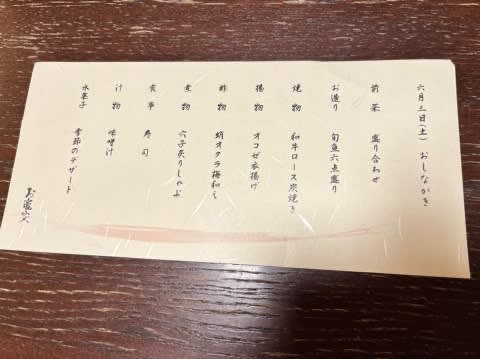 六月三日(土) おしながき
前菜 盛り合わせ
お造り 旬魚六点盛り
焼物 和牛ロース炭焼き
揚物 オコゼ唐揚げ
酢物 蛸オクラ梅和え
煮物 穴子炙りしゃぶ
食事 寿司
汁物 味噌汁
水菓子 季節のデザート